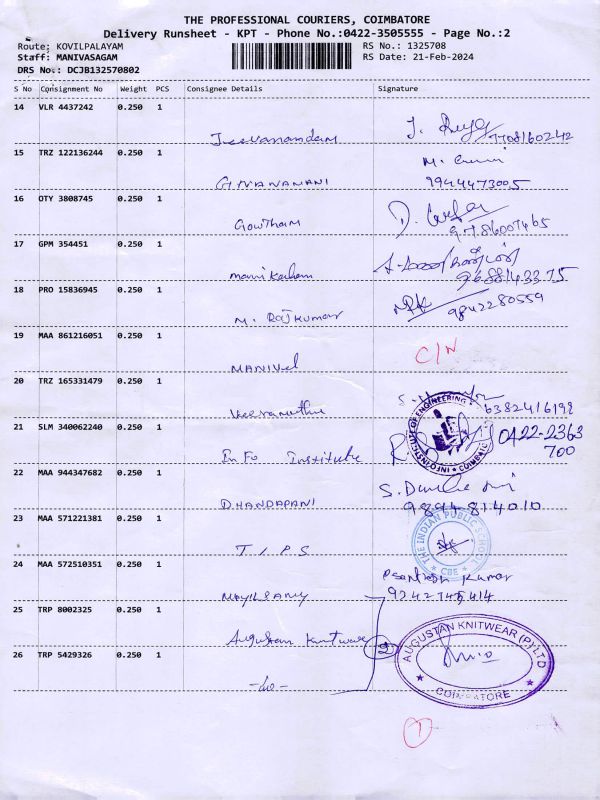 THE PROFESSIONAL COURIERS, COIMBATORE
Delivery Runsheet - KPT - Phone No.:0422-3505555 - Page No.:2
Route: KOVILPALAYAM RS No.: 1325708
Staff: MANIVASAGAM RS Date: 21-Feb-2024
DRS No.: DCJB132570802
S No Consignment No Weight PCS Consignee Details Signature
14 VLR 4437242 0.250 1
Jeevanandam 7708160242
15 TRZ 122136244 0.250 1
9944473005
16 OTY 3808745 0.250 1
Gowtham 9786007465
17 GPM 354451 0.250 1
manikandan 9688143375
18 PRO 15836945 0.250 1
M. Rajkumar 9842280559
19 MAA 861216051 0.250 1
MANIVel C/N
20 TRZ 165331479 0.250 1
Veeramuthu 6382416198
21 SLM 340062240 0.250 1
Info Institute 0422-2363
700
22 MAA 944347682 0.250 1
DHANDAPANI 9894814010
23 MAA 571221381 0.250 1
T.I.P.S THE INDIAN PUBLIC SCHOOL
CBE
24 MAA 572510351 0.250 1
MAYILSAMY 9242745414
25 TRP 8002325 0.250 1
Augustan Knitwear 2 AUGUSTAN KNITWEAR (P) LTD
COIMBATORE
26 TRP 5429326 0.250 1
-do-